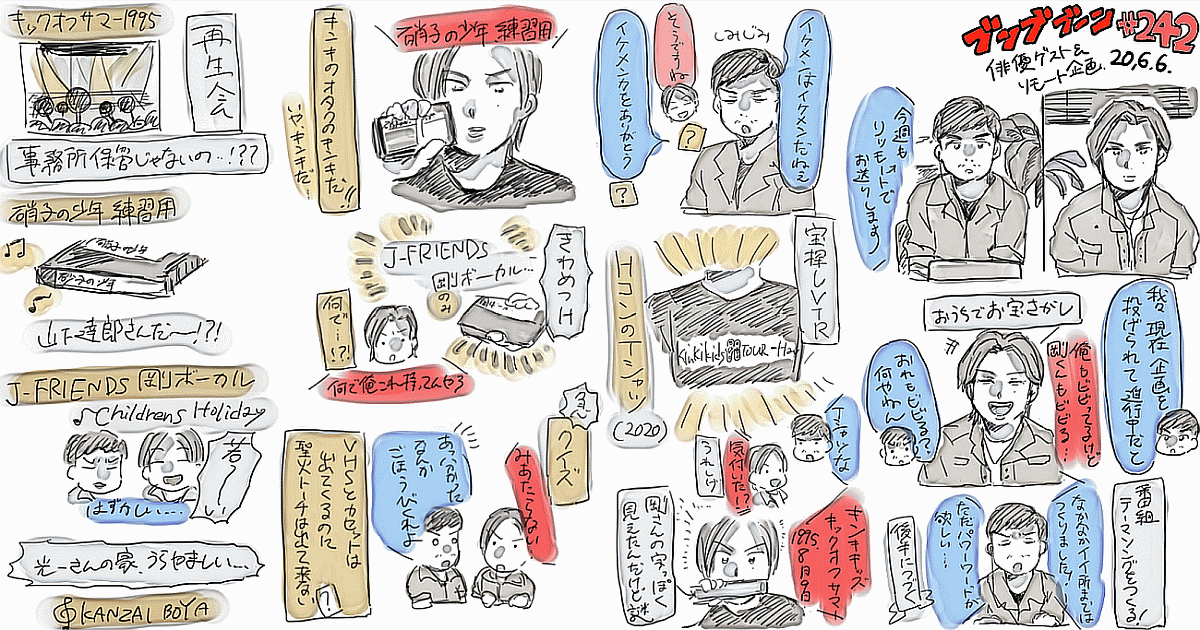 ブンブブーン #242
俳優ゲスト&
リモート企画.
20,6.6.
今週も
リッモートで
お送りします
我々現在企画を
投げられて進行中だと
おうちでお宝さがし
俺もビビってるけど
剛くんもビビる?
おれもビビるって?
何やねん
番組
テーマソングをつくる!
なかなかイイ所までは
つくりました!
ただパワーワードが
欲しい…
後半につづく
イケメンはイケメンだねぇ
しみじみ
そうですね
?
イケメンかをありがとう
?
宝探しVTR
HコンのTシャツ
KinKi Kids TOUR-H-
(2020
Jさんな
気付いた!?
うれしげ
キンキキッズ
キックオフサマー
1995.
8月9日
剛さんの字っぽく
見えたんだけど謎
硝子の少年 練習用
キンキのオタクのキンキだ!!
いや、キンキだ…
きわめつけ
J-FRIENDS
剛ボーカル…
のみ
何で…!?
何で俺これ持ってんやろ
急
クイズ
みあたらない
あっかかった
なんか
ごほうびくれよ
VHSとカセットは
出てくるのに
聖火トーチは出て来ない
?
キックオフサマー1995
再生会
事務所保管じゃないの…!??
硝子の少年 練習用
硝子の少年
山下達郎さんだ〜!?!
J-FRIENDS 剛ボーカル
♪Childrens Holiday
若〜い
はずかしい…
光一さんの家、うらやましい…
KANZAI BOYA